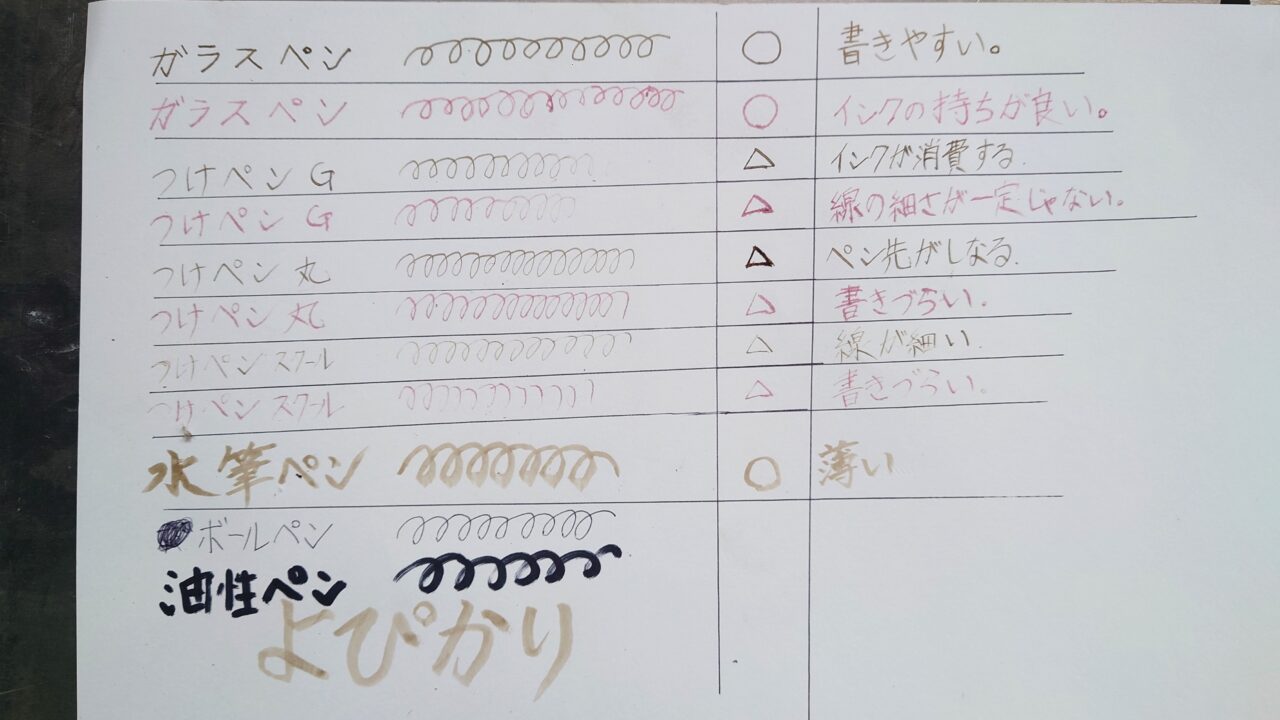 ガラスペン ○ 書きやすい。
ガラスペン ○ インクの持ちが良い。
つけペン G △ インクが消費する.
つけペン G △ 線の細さが一定じゃない。
つけペン 丸 △ ペン先がしなる.
つけペン 丸 △ 書きづらい.
つけペン スクール △ 線が細い.
つけペン スクール △ 書きづらい。
水筆ペン ○ 薄い
ボールペン
油性ペン
よぴかり